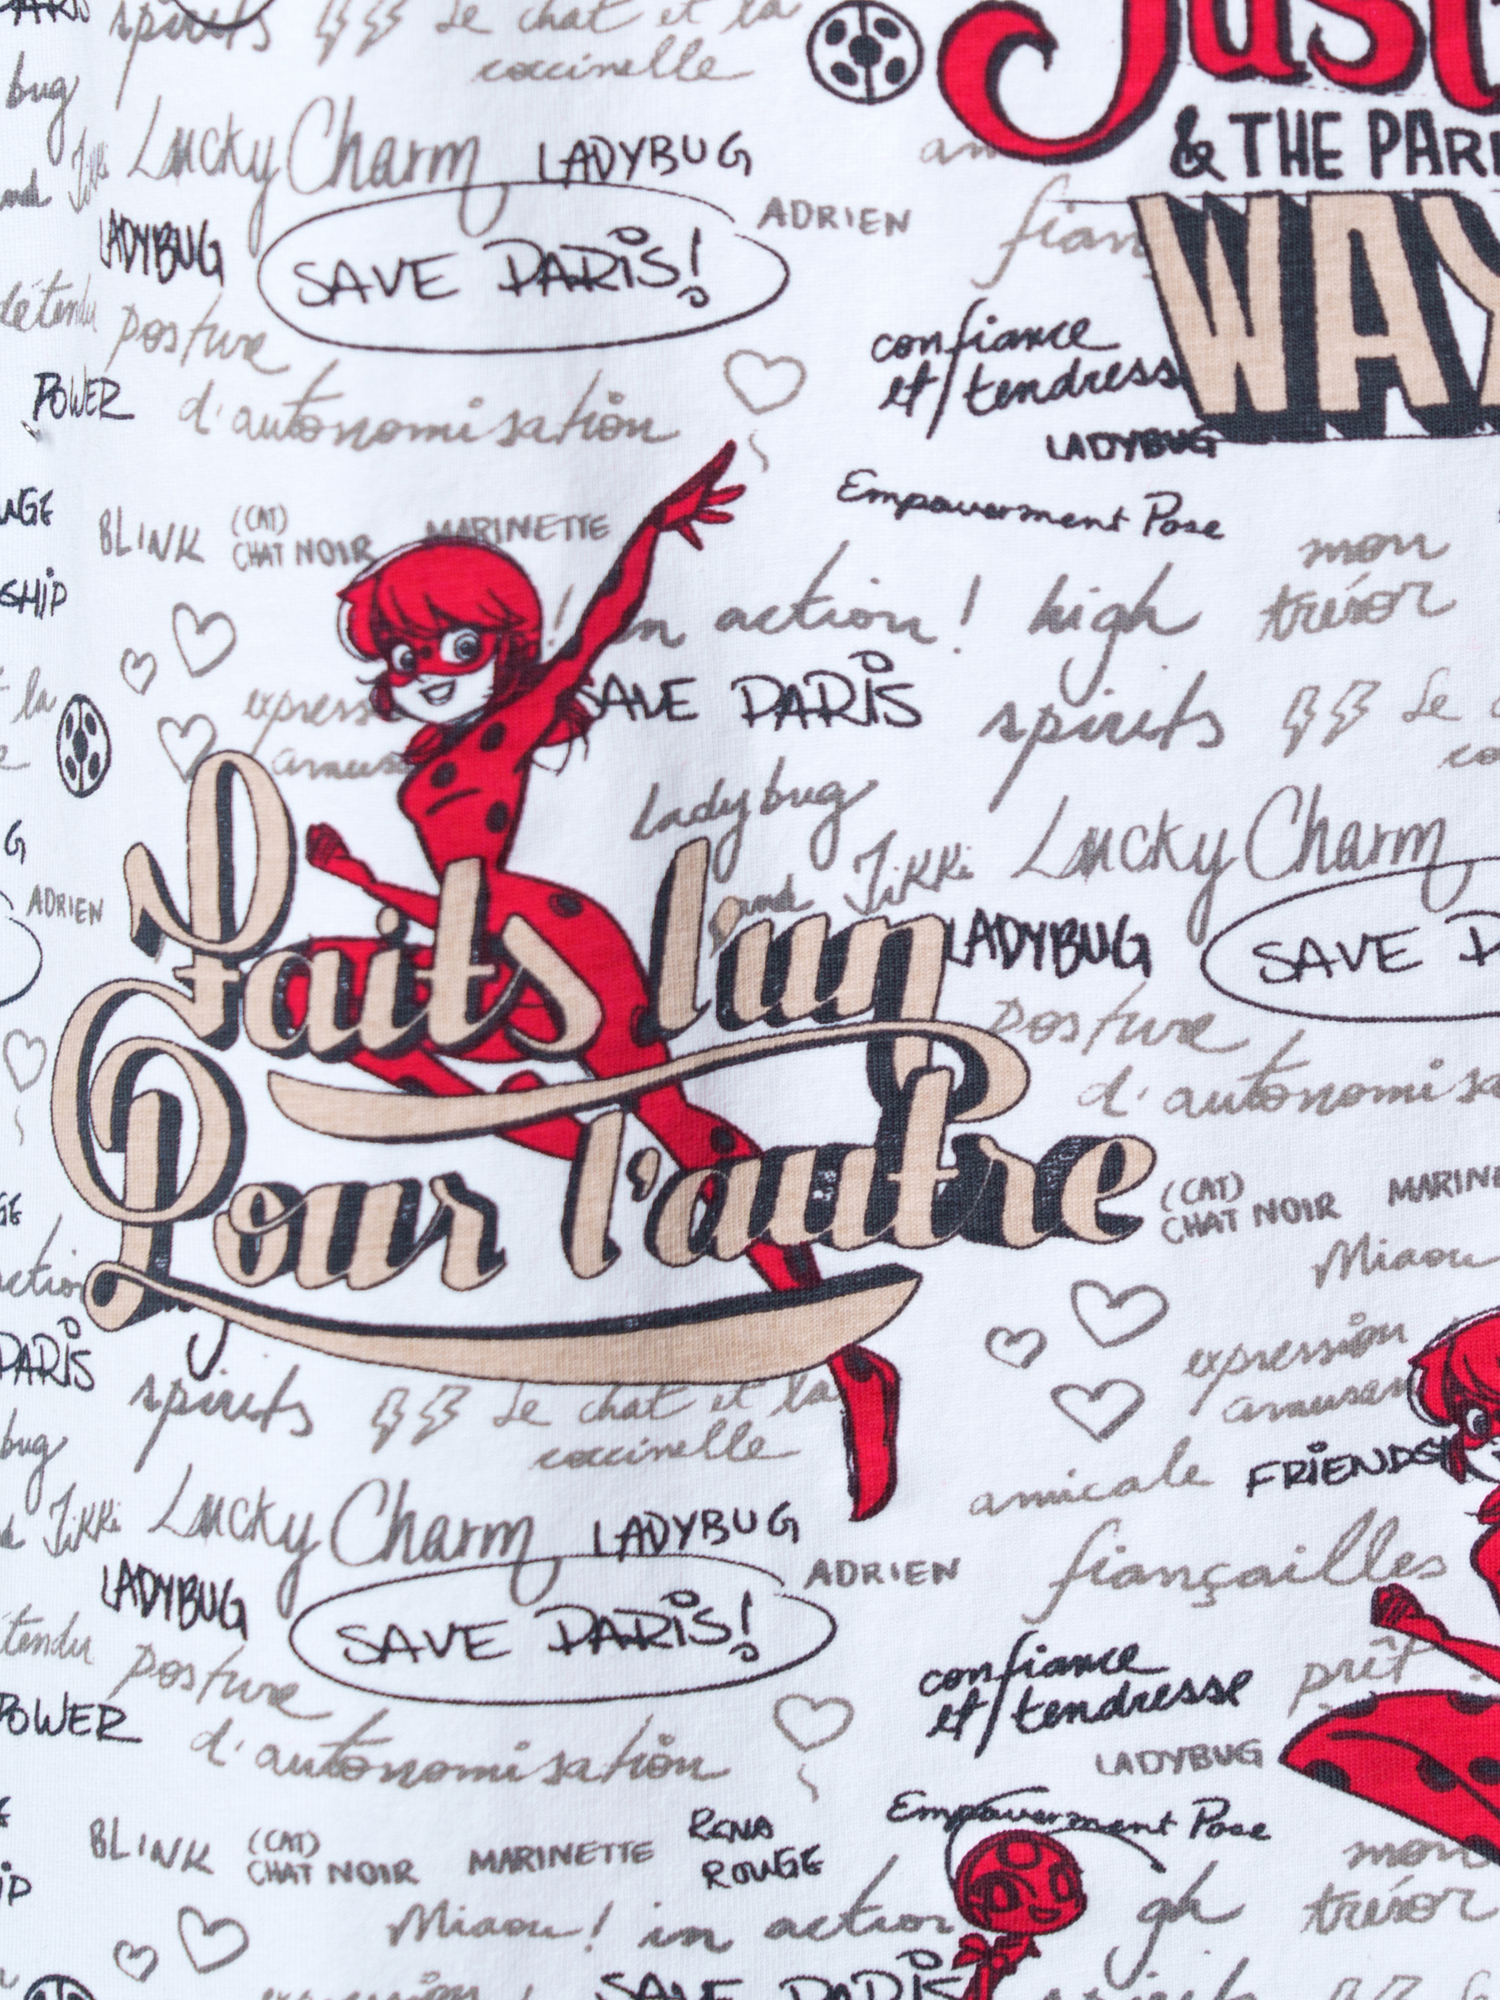 PARIS
spirits Le chat et la
coccinelle
bug
Just
& THE PARI
WAY
Lucky Charm LADYBUG
ADRIEN
LADYBUG
SAVE PARIS!
fian
détendu
posture
confiance
et tendresse
POWER
d'autonomisation
LADYBUG
Empowerment Pose
BLINK (CAT)
CHAT NOIR
MARINETTE
mon
trésor
SHIP
! in action! high
SAVE PARIS
spirits Le
t la
express
amus
ladybug
and Tikki
Lucky Charm
G
ADRIEN
Faits l'un
Pour l'autre
LADYBUG
SAVE P
posture
d'autonomisa
(CAT)
CHAT NOIR
MARINE
Miaou
PARIS
expression
amusan
spirits Le chat et la
coccinelle
bug
amicale FRIENDSH
Tikki Lucky Charm LADYBUG
ADRIEN
fiançailles
LADYBUG
SAVE PARIS!
tendu
posture
confiance
et tendresse
prêt
POWER
d'autonomisation
LADYBUG
Empowerment Pose
BLINK (CAT)
CHAT NOIR
MARINETTE
RENA
ROUGE
mon
trésor
IP
Miaou! in action gh
SAVE PARIS